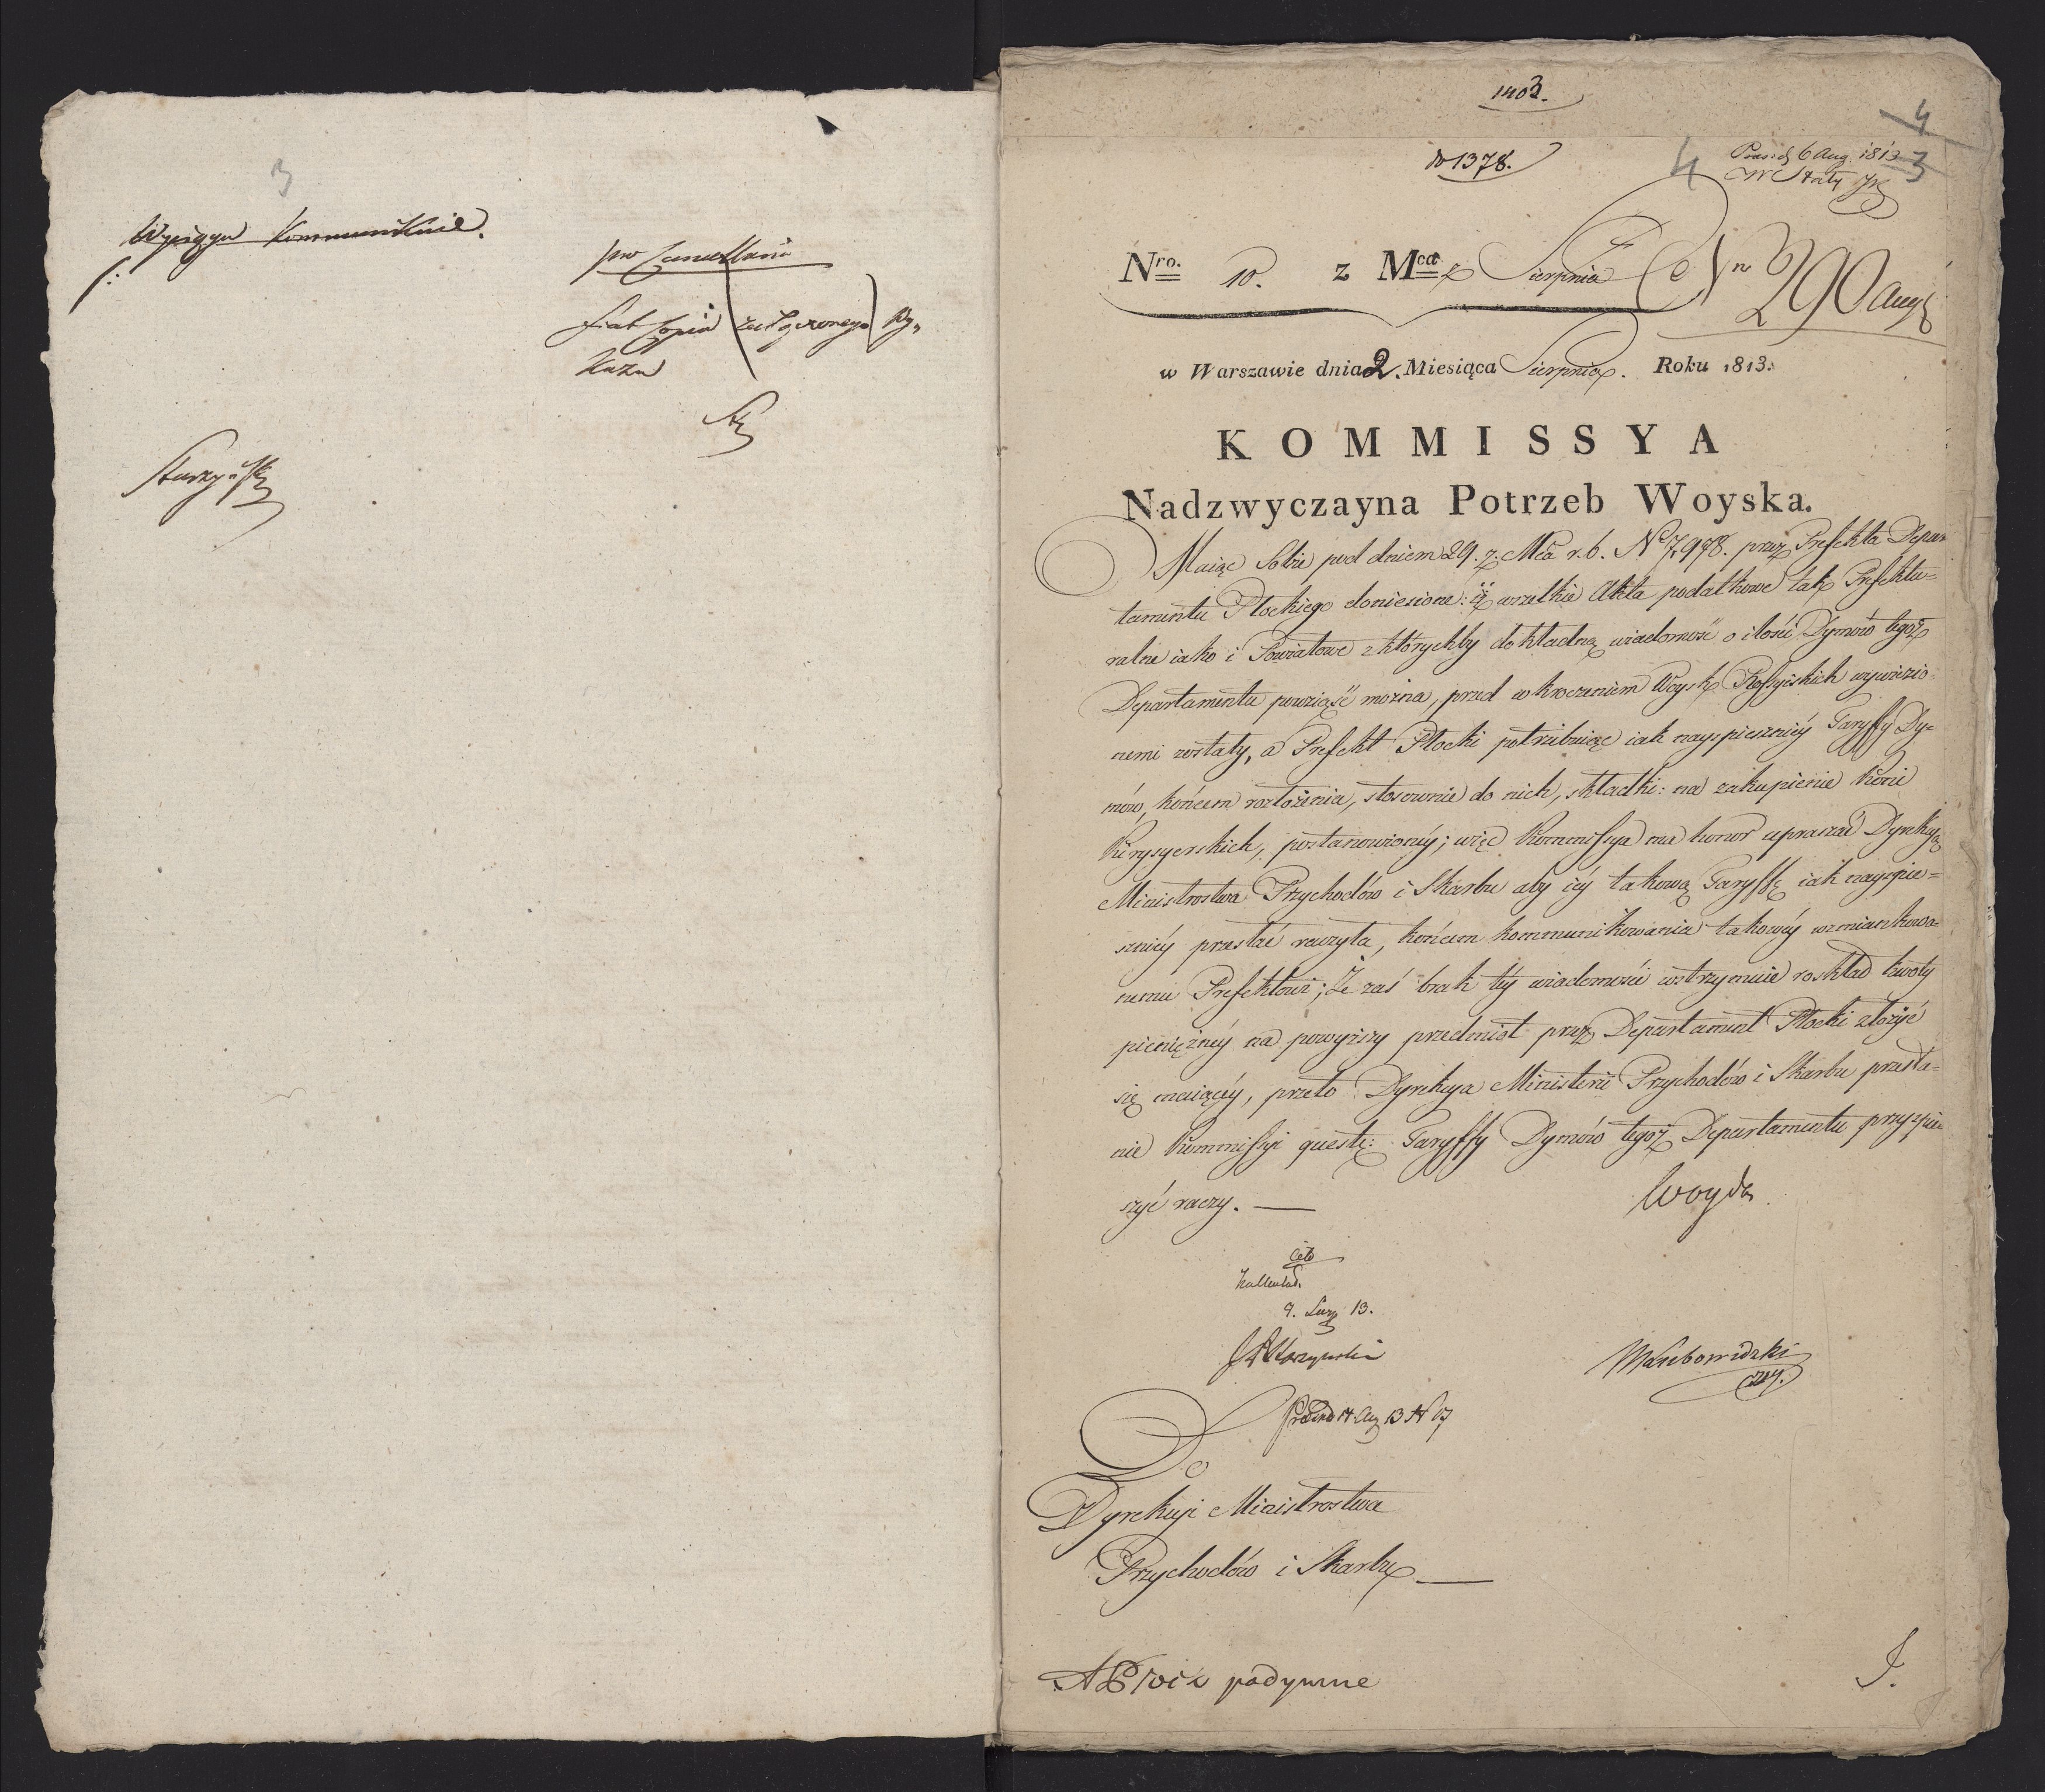 3
Wypisy Kommunikuie.
pro Cancellaria
fiat Copia załączonego Wy„
kazu
Starzyński
1403.
do 1378.
4
4
3
Praes. 6 Aug. 1813
Nro. 10. z Mca Sierpnia
290 Aug
w Warszawie dnia 2. Miesiąca Sierpnia. Roku 1813.
KOMMISSYA
Nadzwyczayna Potrzeb Woyska.
Maiąc Sobie pod dniem 29. z. Mca r. b. No 7,978. przez Prefekta Depar
tamentu Płockiego doniesione: iż wszelkie Akta podatkowe tak Prefektu=
ralne iako i Powiatowe z którychby dokładną wiadomość o ilości Dymów tegoż
Departamentu powziąść można, przed wkroczeniem Woysk Rossyiskich wywiezio=
nemi zostały, a Prefekt Płocki potrzebuiąc iak nayspieszniéy Taryffy Dy=
mów, końcem rozłożenia, stosownie do nich, składki: na zakupienie Koni
Kirysyerskich, postanowionéy; więc Kommissya ma honor upraszać Dyrekcyą
Ministrostwa Przychodów i Skarbu aby iéy takową Taryffę iak nayspie=
szniéy przesłać raczyła, końcem kommunikowania takowéy wzmiankowa=
nemu Prefektowi; Że zaś brak téy wiadomości wstrzymuie roskład kwoty
pieniężnéy na powyższy przedmiot przez Departament Płocki złożyć
się maiącéy, przeto Dyrekcya Ministerii Przychodów i Skarbu przesła=
nie Kommissyi quest: Taryffy Dymów tegoż Departamentu przyspie=
szyć raczy. —
Woyda
Cito
9. 13.
Lubowidzki
Do
Dyrekcyi Ministrostwa
Przychodów i Skarbu —
podymne
J.